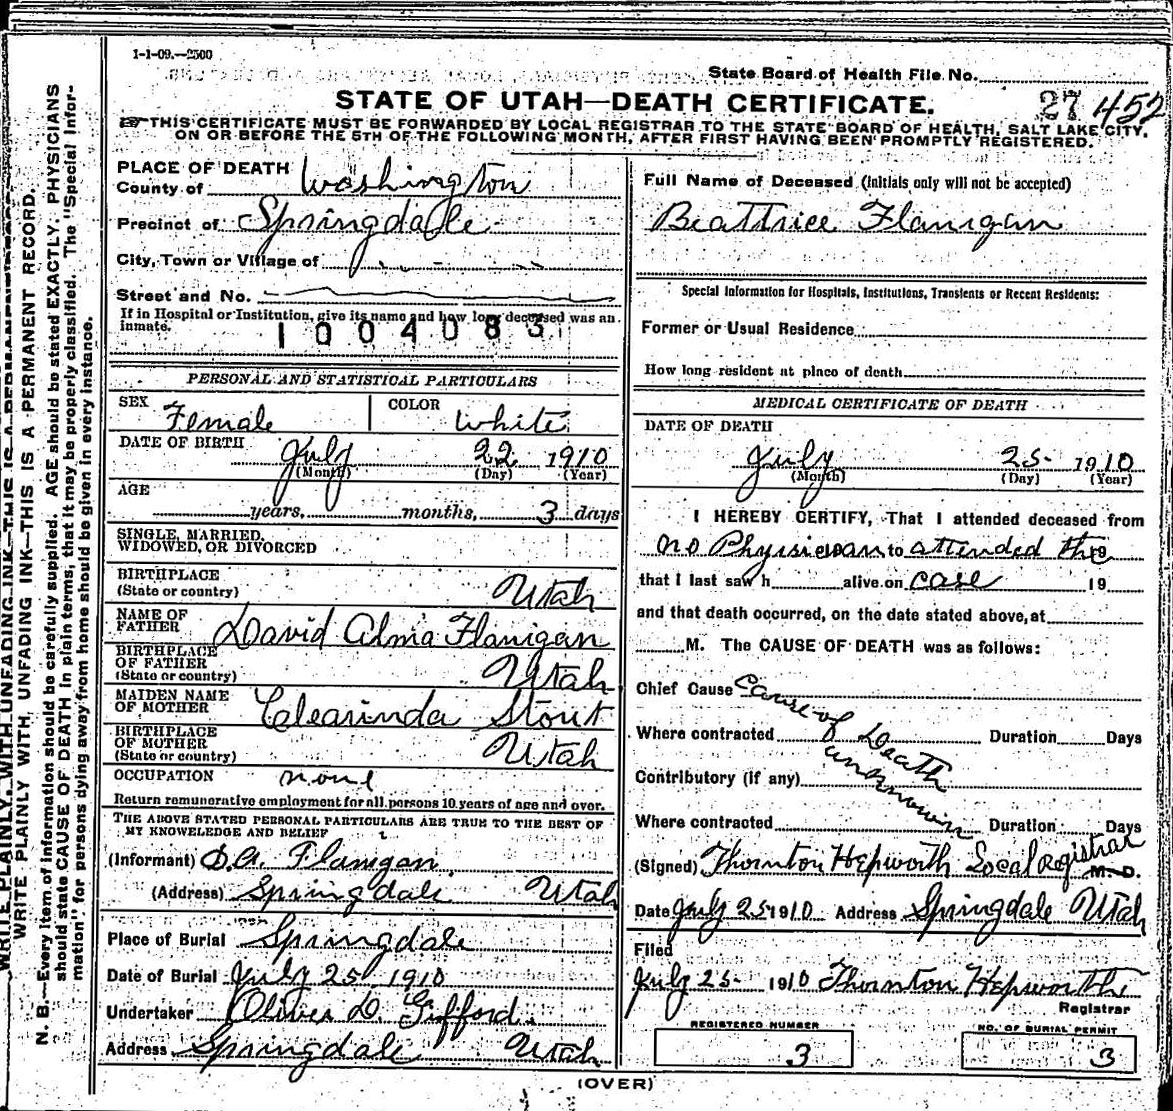 1-1-09.—2500
State Board of Health File No.
STATE OF UTAH—DEATH CERTIFICATE.
27 452
THIS CERTIFICATE MUST BE FORWARDED BY LOCAL REGISTRAR TO THE STATE BOARD OF HEALTH, SALT LAKE CITY,
ON OR BEFORE THE 5TH OF THE FOLLOWING MONTH, AFTER FIRST HAVING BEEN PROMPTLY REGISTERED.
WRITE PLAINLY, WITH UNFADING INK—THIS IS A PERMANENT RECORD.
N. B.—Every item of information should be carefully supplied. AGE should be stated EXACTLY. PHYSICIANS
should state CAUSE OF DEATH in plain terms, that it may be properly classified. The "Special Infor-
mation" for persons dying away from home should be given in every instance.
PLACE OF DEATH
County of Washington
Precinct of Springdale
City, Town or Village of
Street and No.
If in Hospital or Institution, give its name and how long deceased was an
inmate.
1004083
PERSONAL AND STATISTICAL PARTICULARS
SEX Female COLOR White
DATE OF BIRTH July 22 1910
(Month) (Day) (Year)
AGE
years, months, 3 days
SINGLE, MARRIED,
WIDOWED, OR DIVORCED
BIRTHPLACE
(State or country) Utah
NAME OF
FATHER David Alma Flanigan
BIRTHPLACE
OF FATHER
(State or country) Utah
MAIDEN NAME
OF MOTHER Clearinda Stout
BIRTHPLACE
OF MOTHER
(State or country) Utah
OCCUPATION none
Return remunerative employment for all persons 10 years of age and over.
THE ABOVE STATED PERSONAL PARTICULARS ARE TRUE TO THE BEST OF
MY KNOWLEDGE AND BELIEF
(Informant) D.A. Flanigan
(Address) Springdale Utah
Place of Burial Springdale
Date of Burial July 25 1910
Undertaker Oliver D. Gifford.
Address Springdale Utah
Full Name of Deceased (Initials only will not be accepted)
Beattrice Flanigan
Special Information for Hospitals, Institutions, Transients or Recent Residents:
Former or Usual Residence
How long resident at place of death
MEDICAL CERTIFICATE OF DEATH
DATE OF DEATH
July 25 1910
(Month) (Day) (Year)
I HEREBY CERTIFY, That I attended deceased from
no Physician to attended the 19
that I last saw h alive on case 19
and that death occurred, on the date stated above, at
M. The CAUSE OF DEATH was as follows:
Chief Cause Cause of Death unknown
Where contracted Duration Days
Contributory (if any)
Where contracted Duration Days
(Signed) Thornton Hepworth Local Registrar M. D.
Date July 25 1910 Address Springdale Utah
Filed
July 25 1910 Thornton Hepworth
Registrar
REGISTERED NUMBER
3
NO. OF BURIAL PERMIT
3
(OVER)